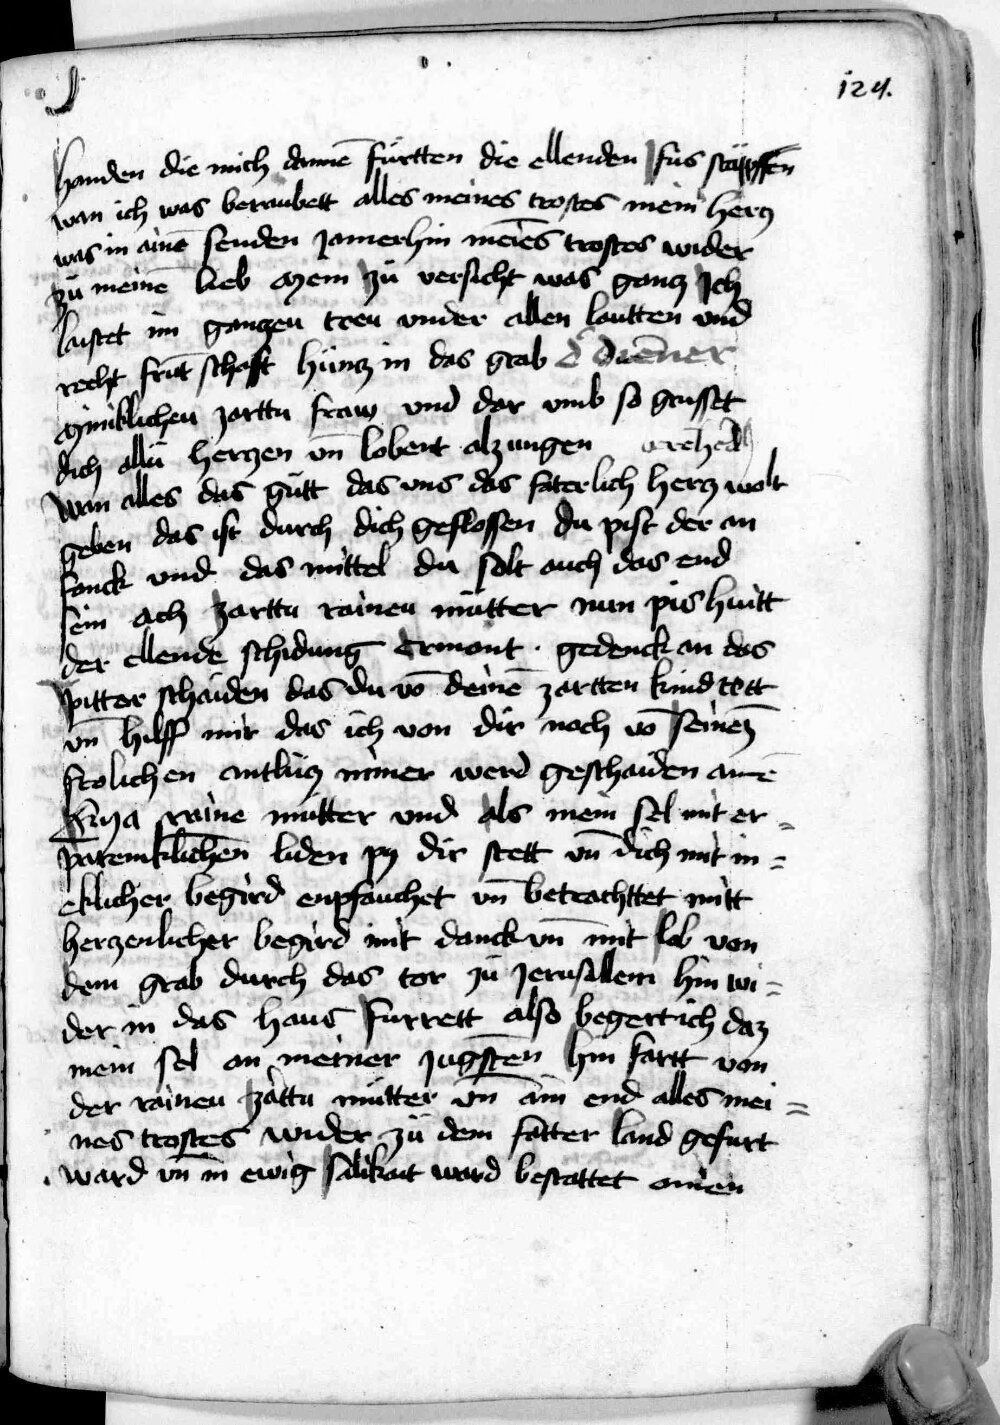 124.
handen die mich dannē fürtten die ellenden fus stapffen
wan ich was beraubett alles meines trostes mein hercz
was in ainē senden Jamerhin meīes trostes wider
zu meinē lieb mein zu versicht was gancz Ich
laistet im ganczeu treu vnder allen lautten vnd
recht frūtschafft hüncz in das grab
miniklicheu zarttu fraw vnd dar vmb so grusset
dich allü herczen vn̄ lobent alzungen
Wan alles das gütt das vns das faterlich hercz wolt
geben das ist durch dich geflossen du pist der an
fanck vnd das mittel du solt auch das end
sein ach zarttu raineu mütter nun pis huitt
der ellende schidung ermont · gedenck an das
pitter schaiden das du vō deinē zartten kind tett
vn̄ hilff mir das ich von dir noch vō seinez
frolichen antlücz nimer werd geschaiden amē
raine mütter vnd als mein sel mit er =
paremklichen liden py dir stett vn̄ dich mit in =
eklicher begird enpfauchet vn̄ betrachttet mitt
herczenlicher begird mit danck vn̄ mit lob von
dem grab durch das tor zu Jerusallem hin wi =
der in das haus furrett also begert ich daz
mein sel an meiner Jugsten hin fartt von
der raineu zattu mütter vn̄ am end alles mei =
nes trostes wider zü dem fatter land gefurt
ward vn̄ in ewig salikait ward bestattet amen